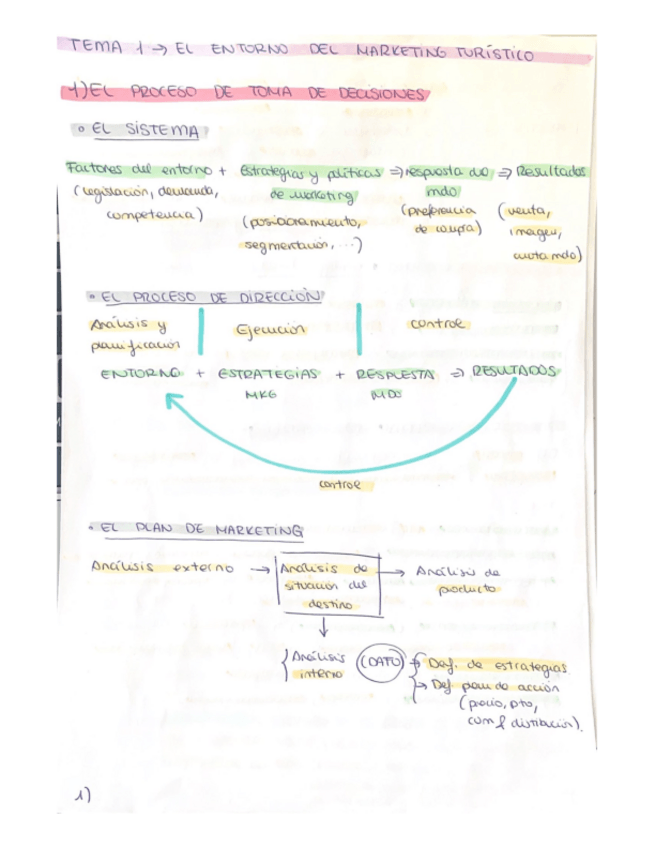 TEMA 1 → EL ENTORNO DEL MARKETING TURÍSTICO
1) EL PROCESO DE TOMA DE DECISIONES
EL SISTEMA
Factores del entorno + Estrategias y políticas ⇒ respuesta del ⇒ Resultados
de marketing mdo
(legislación, demanda, (preferencia (venta,
competencia) (posicionamiento, de compra) imagen,
segmentación, ...) cuota mdo)
EL PROCESO DE DIRECCIÓN
Análisis y Ejecución control
planificación
ENTORNO + ESTRATEGIAS + RESPUESTA ⇒ RESULTADOS
MKG MDO
control
EL PLAN DE MARKETING
Análisis externo → Análisis de → Análisis de
situación del producto
destino
Análisis (DAFO) → Def. de estrategias
interno → Def. plan de acción
(precio, pto,
com y distribución).
1)